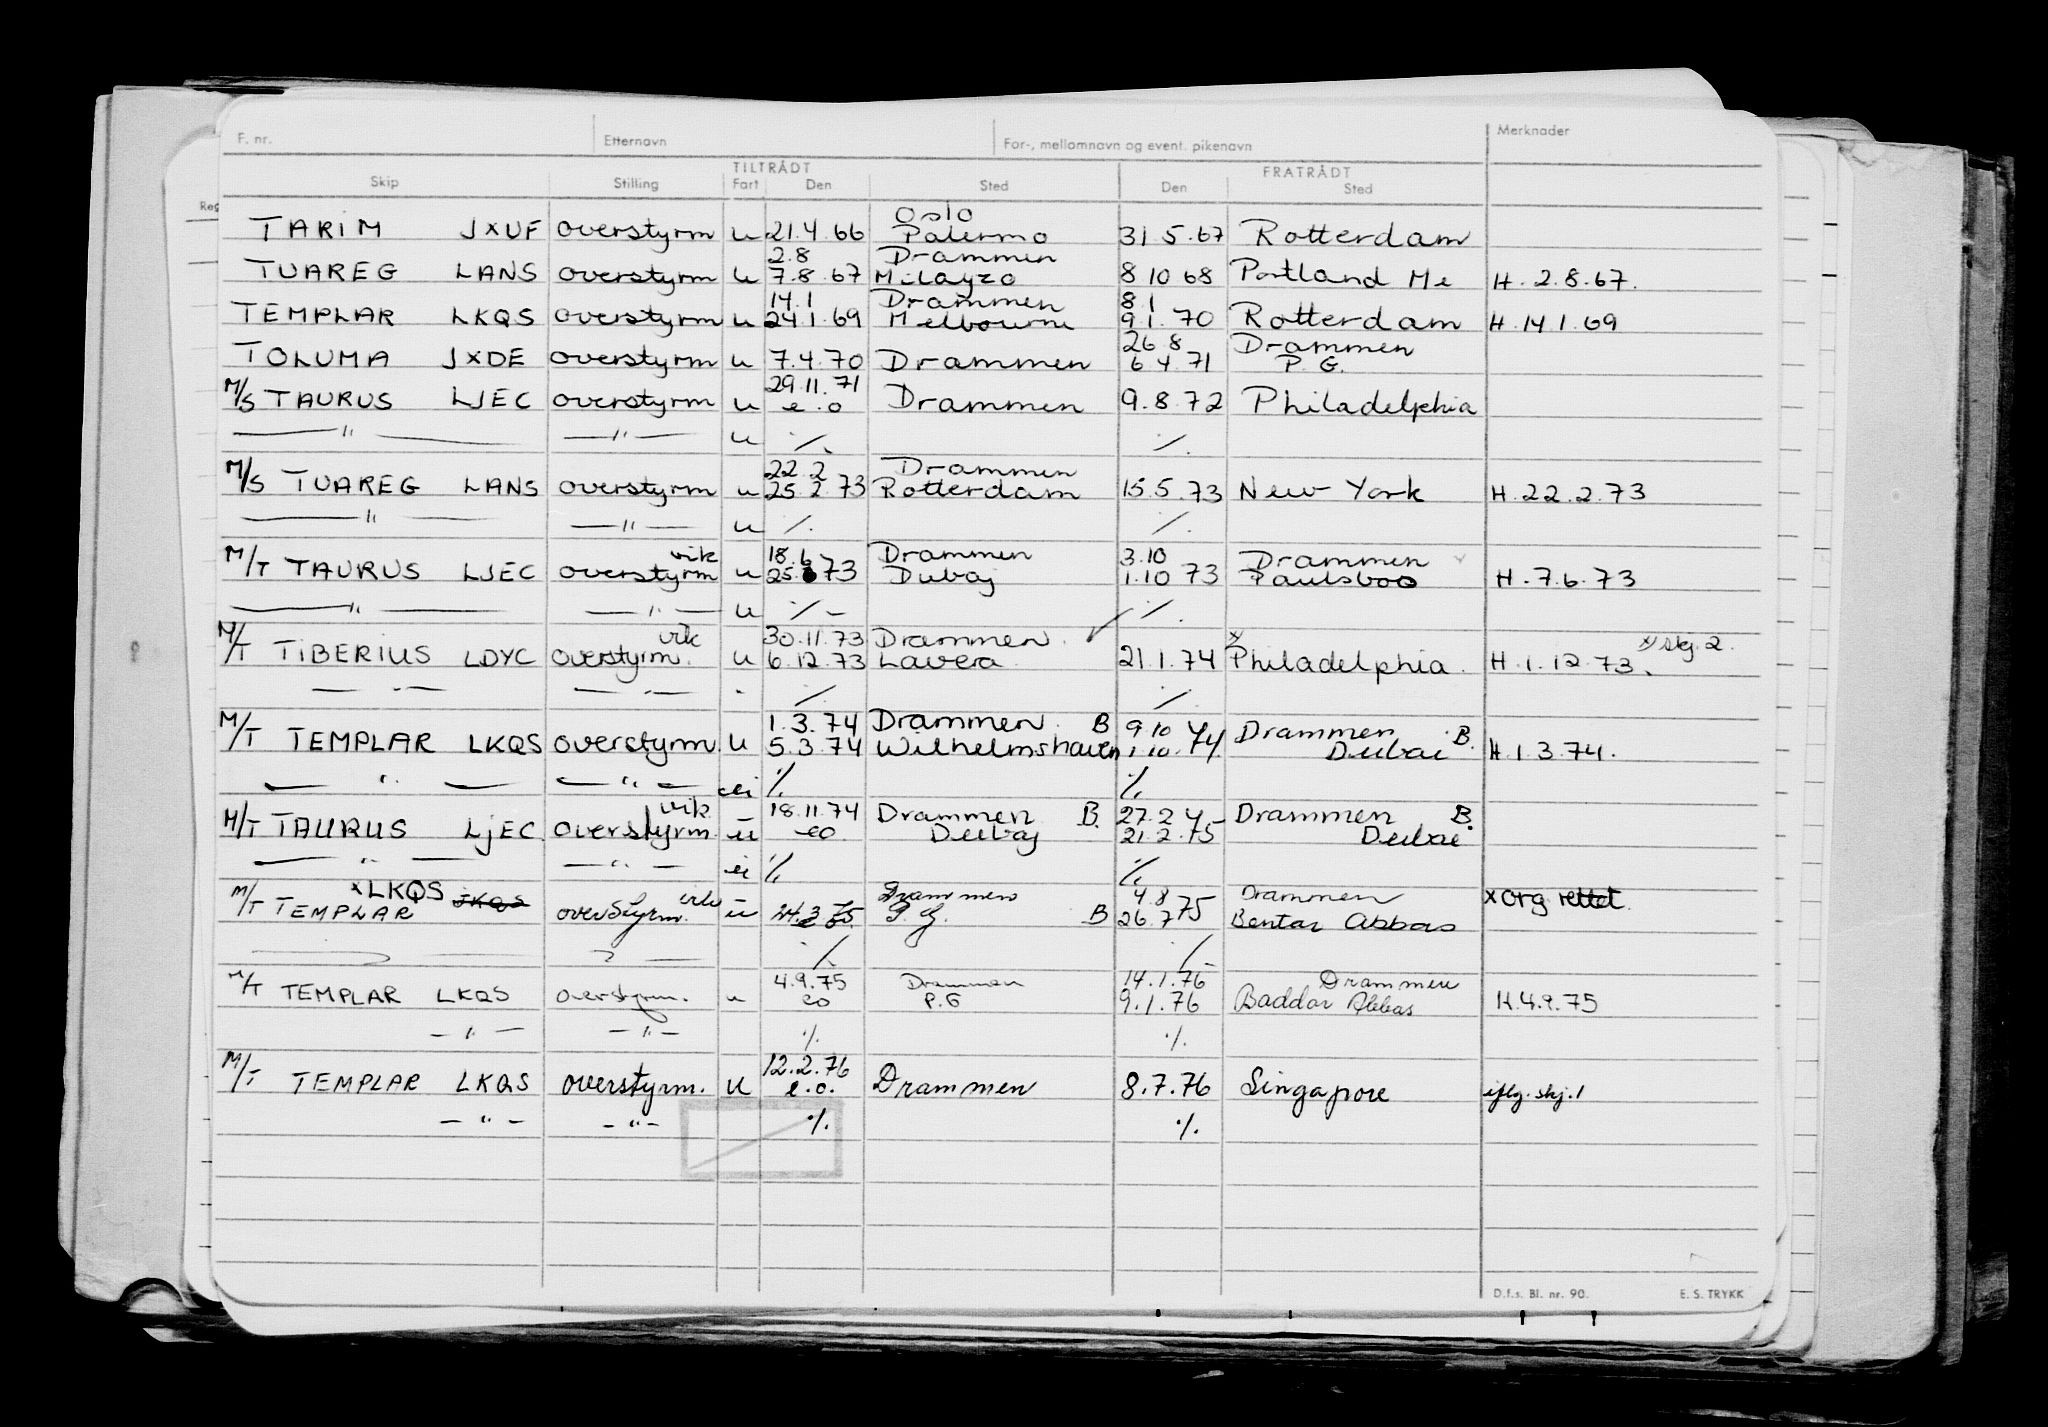 F. nr. Etternavn For-, mellomnavn og event. pikenavn Merknader
TILTRÅDT FRATRÅDT
Skip Stilling Fart Den Sted Den Sted
Reg
Oslo
TARIM JXUF overstyrm u 21.4.66 Palermo 31 5.67 Rotterdam
2.8 Drammen
TUAREG LANS overstyrm u 7.8.67 Milazzo 8 10 68 Portland Me H. 2.8.67.
14.1 Drammen 8.1
TEMPLAR LKQS overstyrm u 24.1.69 Melbourne 9.1.70 Rotterdam H. 14.1.69
26 8 Drammen
TOLUMA JXDE overstyrm u 7.4.70 Drammen 6 4.71 P. G.
29.11.71
M/S TAURUS LJEC overstyrm u e.o Drammen 9.8.72 Philadelphia
—"— —"— u ./. ./.
22.2 Drammen
M/S TUAREG LANS overstyrm u 25.2.73 Rotterdam 15.5.73 New York H. 22.2.73
—"— —"— u ./. ./.
vik 18.6 Drammen 3.10 Drammen
M/T TAURUS LJEC overstyrm u 25. 73 Dubaj 1.10 73 Paulsboo H. 7.6.73
—"— —"— u ./. ./.
vik 30.11.73 Drammen x) x) skj. 2.
M/T TIBERIUS LDYC overstyrm. u 6.12.73 Lavera 21.1.74 Philadelphia. H. 1.12.73.
—"— —"— ./. ./.
1.3.74 Drammen B 9 10 Drammen B.
M/T TEMPLAR LKQS overstyrm. u 5.3.74 Wilhelmshaven 1.10.74 Dubai H. 1.3.74.
—"— —"— u ./. ./.
vik 18.11.74 Drammen B. 27.2 Drammen B.
M/T TAURUS LJEC. overstyrm. u eo. Dubaj 21.2.75 Dubai
—"— —"— u ./. ./.
xLKQS JKQS vik Drammen 4.8 Drammen x org rettet.
M/T TEMPLAR overstyrm. u 24.3.75. P.G. B 26.7 75 Bentar Abbas
./. ./.
4.9.75 Drammen 14.1.76 Drammen
M/T TEMPLAR LKQS overstyrm. u eo P.G 9.1.76 Baddar Abbas H.4.9.75
—"— —"— ./. ./.
12.2.76
M/T TEMPLAR LKQS overstyrm. u e.o. Drammen 8.7.76 Singapore iflg. skj. 1
—"— —"— ./. ./.
D.f.s. Bl. nr. 90. E. S. TRYKK